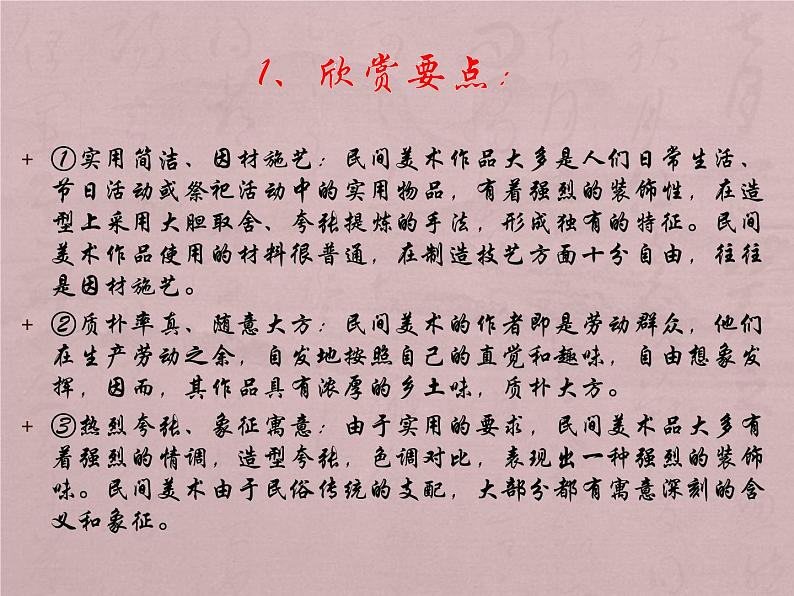 1、欣赏要点：
+ ①实用简洁、因材施艺：民间美术作品大多是人们日常生活、
节日活动或祭祀活动中的实用物品，有着强烈的装饰性，在造
型上采用大胆取舍、夸张提炼的手法，形成独有的特征。民间
美术作品使用的材料很普通，在制造技艺方面十分自由，往往
是因材施艺。
+ ②质朴率真、随意大方：民间美术的作者即是劳动群众，他们
在生产劳动之余，自发地按照自己的直觉和趣味，自由想象发
挥，因而，其作品具有浓厚的乡土味，质朴大方。
+ ③热烈夸张、象征寓意：由于实用的要求，民间美术品大多有
着强烈的情调，造型夸张，色调对比，表现出一种强烈的装饰
味。民间美术由于民俗传统的支配，大部分都有寓意深刻的含
义和象征。